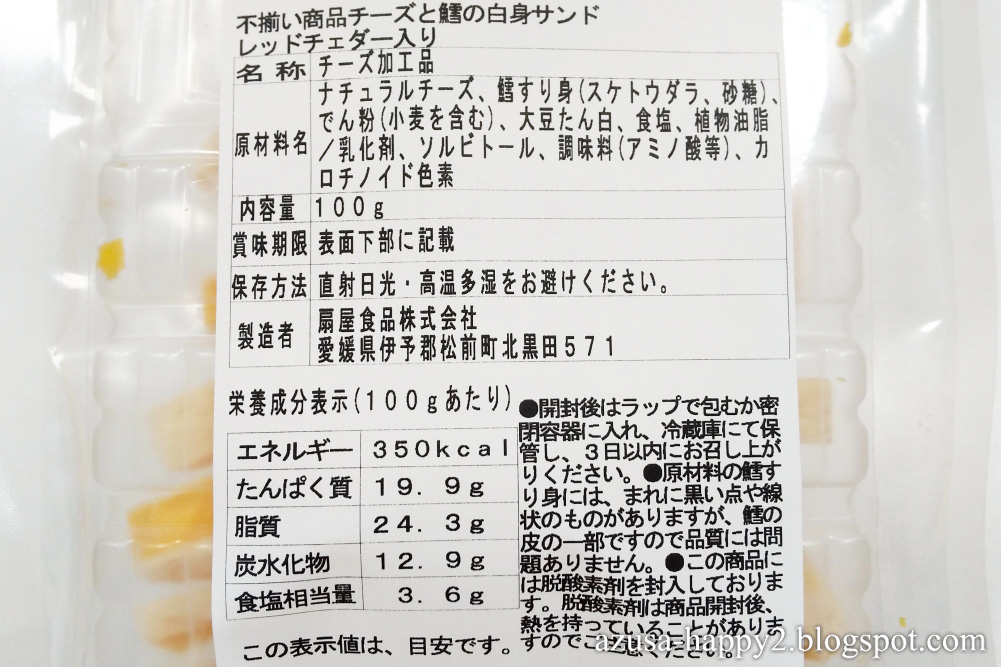 不揃い商品チーズと鱈の白身サンド
レッドチェダー入り
名称 チーズ加工品
原材料名 ナチュラルチーズ、鱈すり身(スケトウダラ、砂糖)、
でん粉(小麦を含む)、大豆たん白、食塩、植物油脂
/乳化剤、ソルビトール、調味料(アミノ酸等)、カ
ロチノイド色素
内容量 100g
賞味期限 表面下部に記載
保存方法 直射日光・高温多湿をお避けください。
製造者 扇屋食品株式会社
愛媛県伊予郡松前町北黒田571
栄養成分表示(100gあたり)
エネルギー 350kcal
たんぱく質 19.9g
脂質 24.3g
炭水化物 12.9g
食塩相当量 3.6g
この表示値は、目安です。
●開封後はラップで包むか密
閉容器に入れ、冷蔵庫にて保
管し、3日以内にお召し上が
りください。●原材料の鱈す
り身には、まれに黒い点や線
状のものがありますが、鱈の
皮の一部ですので品質には問
題ありません。●この商品に
は脱酸素剤を封入しておりま
す。脱酸素剤は商品開封後、
熱を持っていることがありま
すのでご注意ください。
azusa-happy2.blogspot.com